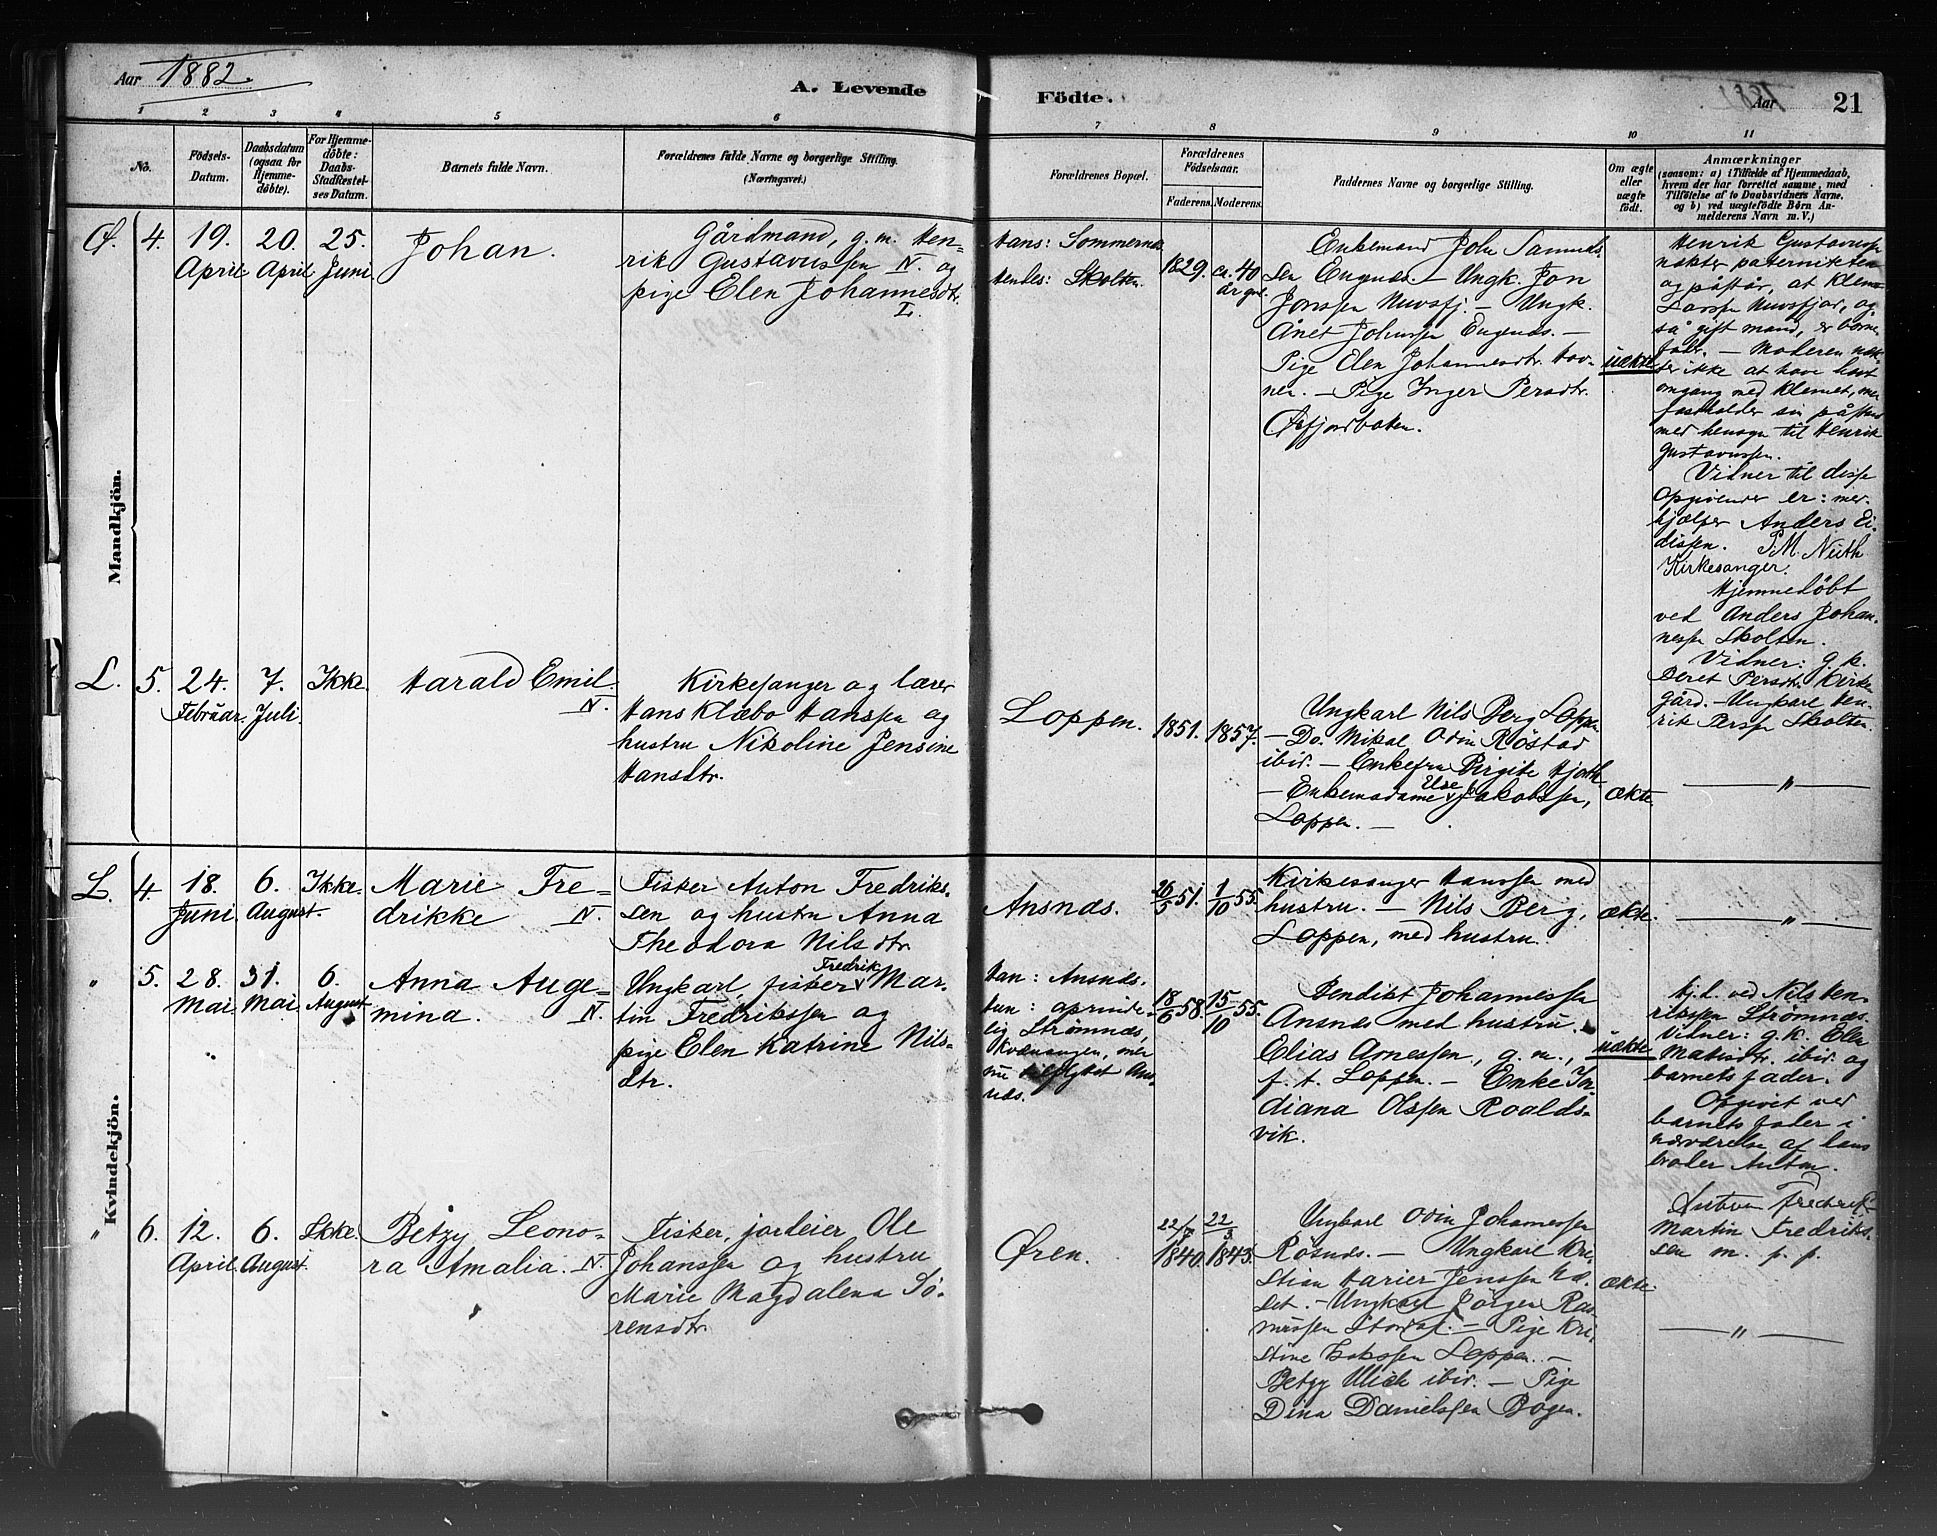 Aar 1882.
A. Levende
Födte.
Aar
21
1 2 3 4 5 6 7 8 9 10 11
No.
Födsels-
Datum.
Daabsdatum
(ogsaa for
Hjemme-
döbte).
For Hjemme-
döbte:
Daabs-
Stadfæstel-
ses Datum.
Barnets fulde Navn.
Forældrenes fulde Navne og borgerlige Stilling.
(Næringsvei.)
Forældrenes Bopæl.
Forældrenes
Födselsaar.
Faderens. Moderens.
Faddernes Navne og borgerlige Stilling.
Om ægte
eller
uægte
födt.
Anmærkninger
(saasom: a) i Tilfælde af Hjemmedaab,
hvem der har forrettet samme, med
Tilföielse af to Daabsvidners Navne,
og b) ved uægtefödte Börn An-
melderens Navn m. V.)
Mandkjön.
Ø. 4.
19.
April
20.
April
25.
Juni
Johan.
Gårdmand, g. m. Hen-
rik Gustavussen N. og
pige Elen Johannesdtr.
L.
Hans: Sommernes
Hendes: Skolten.
1829.
ca. 40
år gml.
Enkemand John Samuels-
sen Eugnæs. — Ungk. Jon
Jonssen Nuvsfj. — Ungk.
Anet Johnssen Eugnæs. —
Pige Elen Johannesdtr. Hav-
nen. — Pige Inger Persdtr.
Øxfjordboten.
uækte
Henrik Gustavussen
nekter paterniteten
og påstår, at Klem-
Larssen Nuvsfjor, og-
så gift mand, er barne-
fader. — Moderen næk-
ter ikke at have havt
omgang med Klemet, men
fastholder sin påstand
med hensyn til Henrik
Gustavussen.
Vidner til disse
Opgivender er: med-
hjælper Anders Ei-
dissen. P.M. Nuth
Kirkesanger.
Hjemmedöbt
ved Anders Johan-
nessen Skolten.
Vidner: g. k.
Beret Persdtr. Kirke-
gård. — Ungkarl Hen-
rik Perssen Skolten.
L. 5.
24.
Februar.
7.
Juli.
Ikke.
Harald Emil.
N.
Kirkesanger og lærer
Hans Klæbo Hanssen og
hustru Nikoline Jensine
Hansdtr.
Loppen.
1851.
1857.
Ungkarl Nils Berg Loppen
— Do. Mikal Odin Røstad
ibid. — Enkefru Birgite Hjorth
— Enkemadame Else Jakobssen,
Loppen. —
ækte
— „ —
Kvindekjön.
L. 4.
18.
Juni
6.
August.
Ikke.
Marie Fre-
drikke N.
Fisker Anton Fredriks-
sen og hustru Anna
Theodora Nilsdtr.
Ansnæs.
26/5 51.
1/10 55.
Kirkesanger Hanssen med
hustru. — Nils Berg,
Loppen, med hustru.
ækte.
— „ —
„ 5.
28.
Mai
31.
Mai
6.
August
Anna Auge-
mina. N.
Ungkarl, fisker Fredrik Mar-
tin Fredrikssen og
pige Elen Katrine Nils-
dtr.
Han: Ansnæs.
Hun: oprinde-
lig Strømnæs,
Kvænangen, men
nu tilflyttet Ans-
næs.
18/6 58.
15/10 55.
Bendikt Johannessen
Ansnæs med hustru.
Elias Arnessen, g. m.,
f. t. Loppen. — Enke In-
diana Olssen Roalds-
vik.
uækte
Hj.d. ved Nils Hen-
rikssen Strømnæs.
Vidner: g. k. Elen
Matisdtr. ibid. og
barnets fader.
Opgivet ved
barnets fader i
nærværelse af hans
broder Anton.
Fredrik
Martin Fredriks-
sen m. p. p.
„ 6.
12.
April.
6.
August.
Ikke.
Betzy Leono-
ra Amalia. N.
Fisker, jordeier Ole
Johanssen og hustru
Marie Magdalena Sö-
rensdtr.
Øren.
22/7
1840.
22/3
1843.
Ungkarl Odin Johannessen
Røsnæs. — Ungkarl Kri-
stian Harier Jenssen Hæ-
set. — Ungkarl Jörgen Ras-
mussen Stordal. — Pige Kri-
stine Isakssen Loppen. —
Betzy Ulich ibid. — Pige
Dina Danielssen Bogen.
ækte.
— „ —